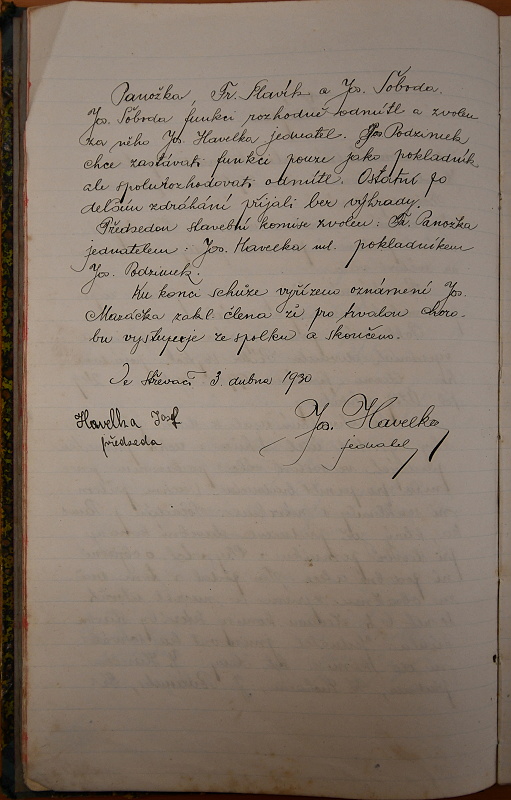 Panožka, Fr. Slavík a Jos. Soboda.
Jos. Soboda funkci rozhodně odmítl a zvolen
za něho Jos. Havelka jednatel. Jos Podzimek
chce zastávati funkci pouze jako pokladník
ale spolurozhodovati odmítl. Ostatní po
delším zdráhání přijali bez výhrady.
Předsedou stavební komise zvolen: Fr. Panožka
jednatelem: Jos. Havelka ml. pokladníkem
Jos. Podzimek.
Ku konci schůze vyřízeno oznámení Jos.
Mazáčka zakl. člena že pro trvalou choro-
bu vystupuje ze spolku a skončeno.
Ve Střevači 3. dubna 1930
Havelka Josef
předseda
Jos. Havelka
jednatel